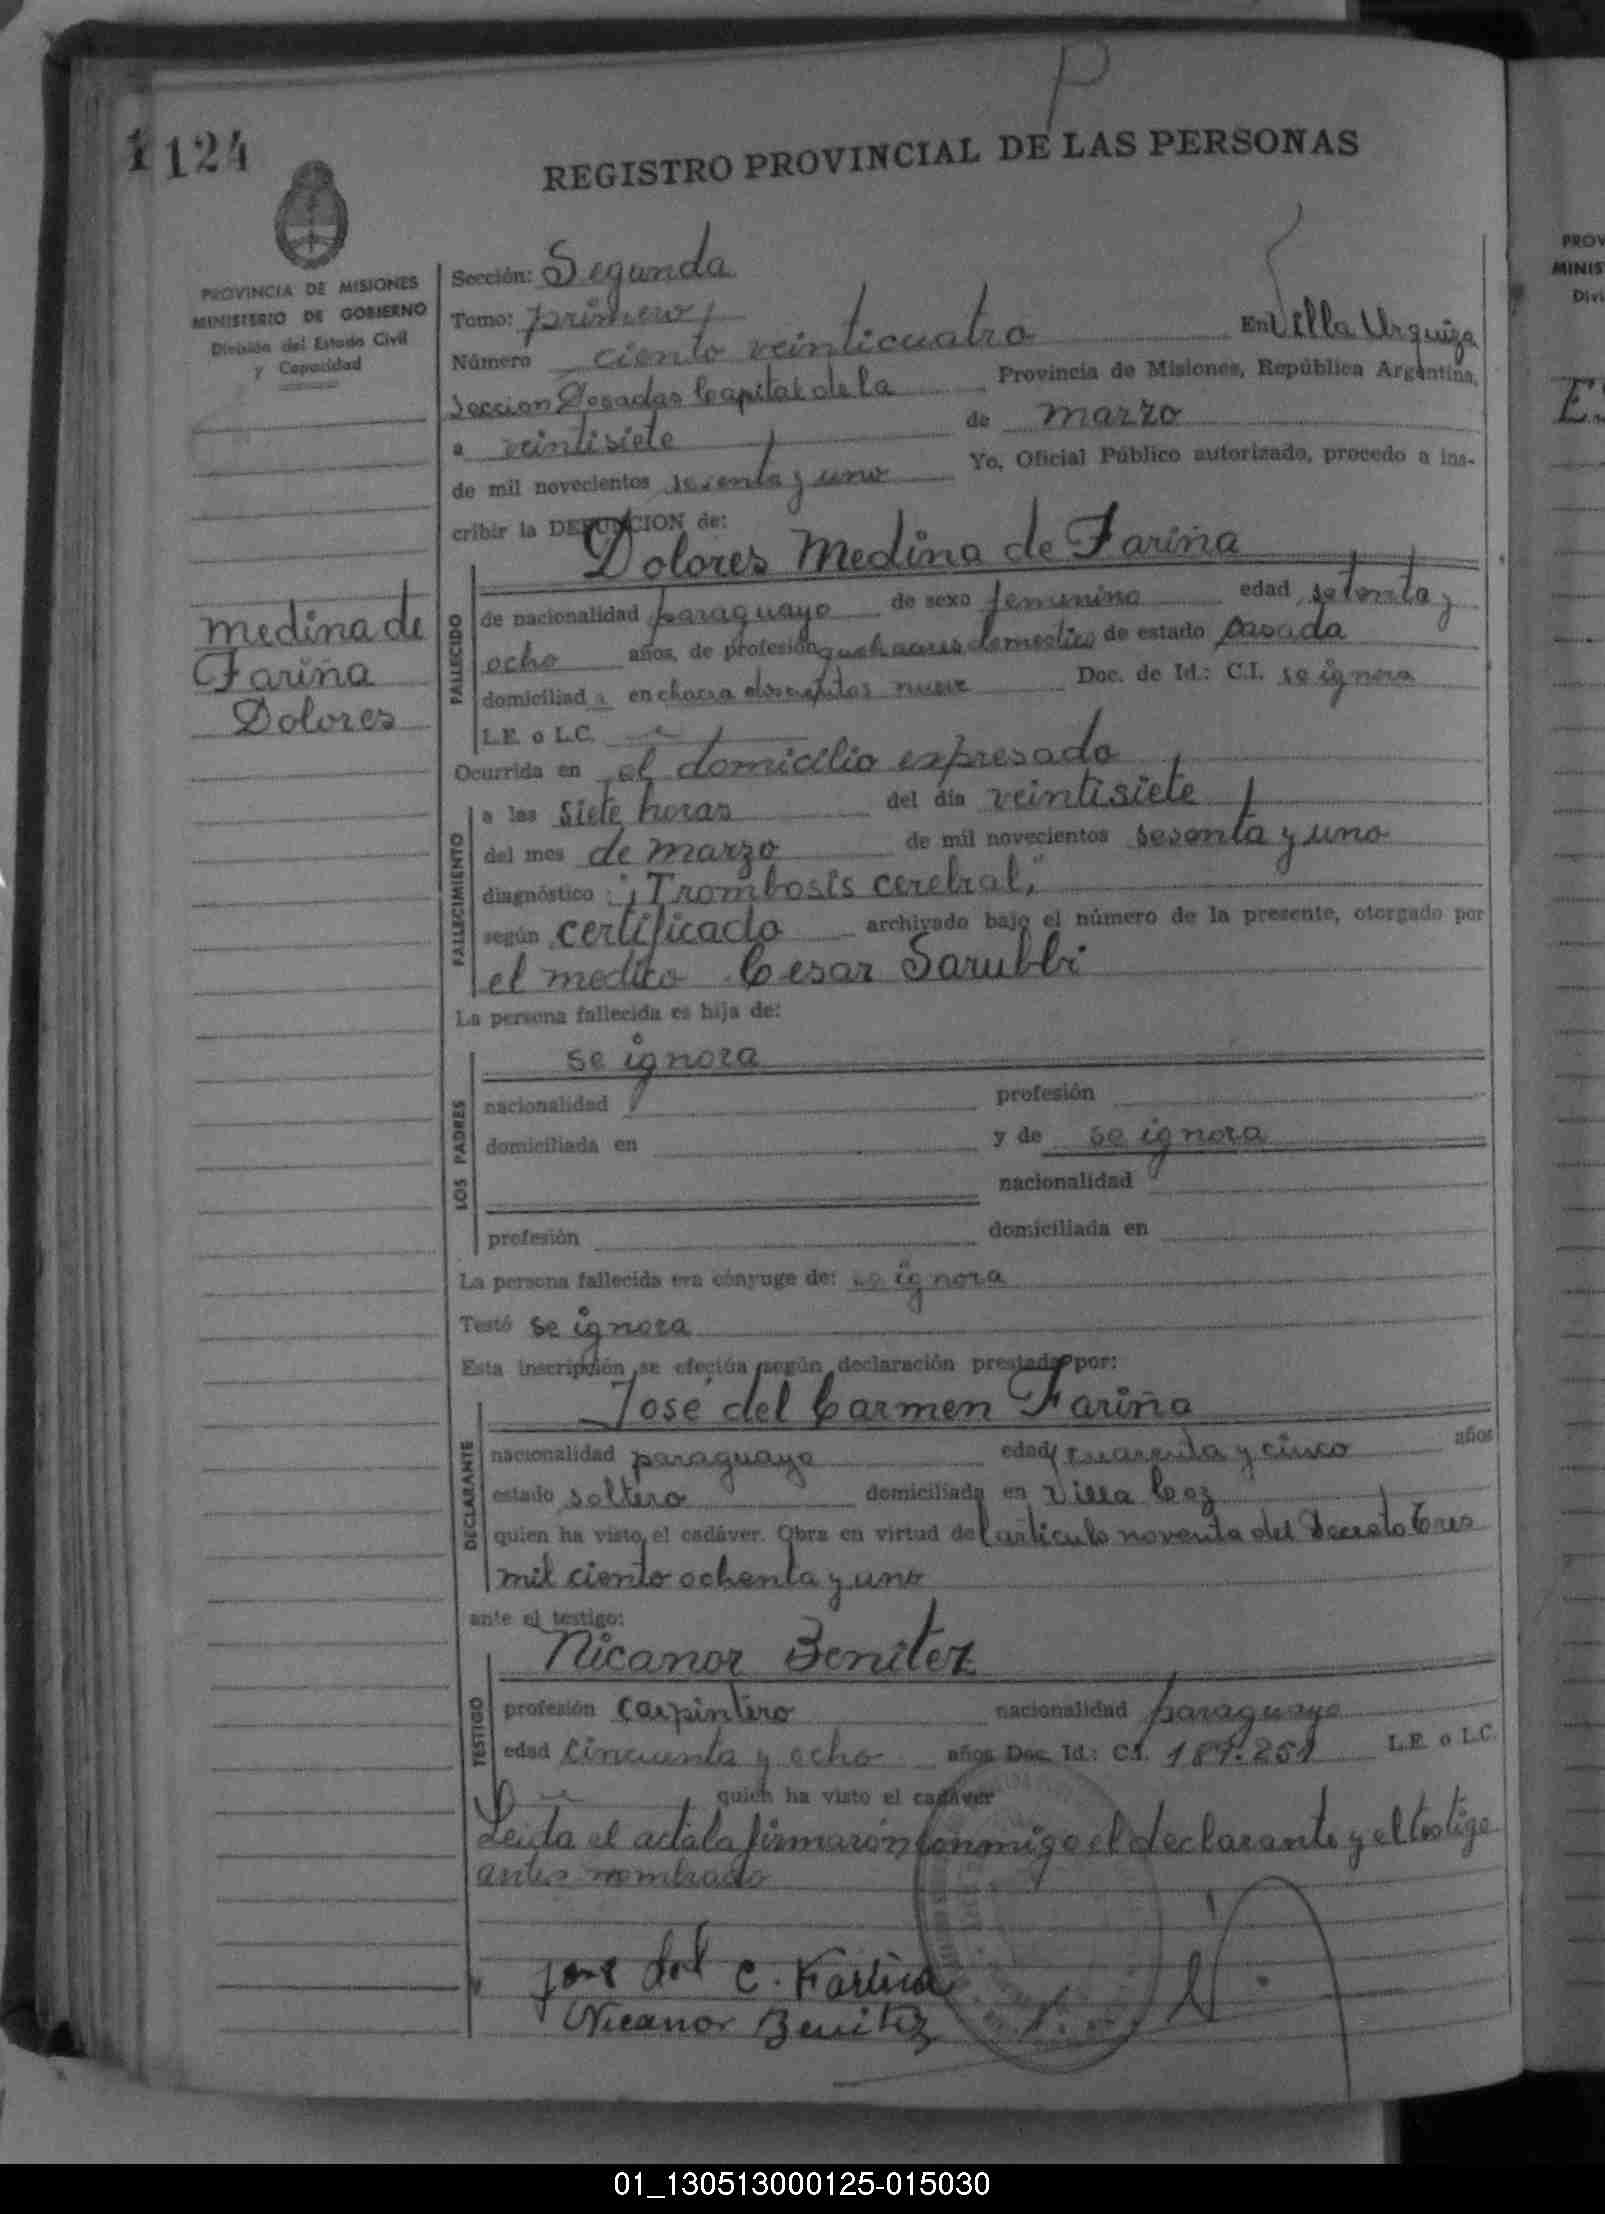 P
1 124
REGISTRO PROVINCIAL DE LAS PERSONAS
PROVINCIA DE MISIONES
MINISTERIO DE GOBIERNO
División del Estado Civil
y Capacidad
Sección: Segunda
Tomo: primero
Número ciento veinticuatro En Villa Urquiza
Seccion Posadas Capital de la Provincia de Misiones, República Argentina,
a veintisiete de marzo
de mil novecientos sesenta y uno Yo, Oficial Público autorizado, procedo a ins-
cribir la DEFUNCION de:
Dolores Medina de Fariña
medina de
Fariña
Dolores
FALLECIDO
de nacionalidad paraguaya de sexo femenino edad setenta y
ocho años, de profesión quehaceres domestico de estado casada
domiciliada en chacra doscientos nueve Doc. de Id.: C.I. se ignora
L.E. o L.C.
Ocurrida en el domicilio expresado
FALLECIMIENTO
a las siete horas del día veintisiete
del mes de marzo de mil novecientos sesenta y uno
diagnóstico: "Trombosis cerebral,"
según certificado archivado bajo el número de la presente, otorgado por
el medico Cesar Sarubbi
La persona fallecida es hija de:
LOS PADRES
se ignora
nacionalidad profesión
domiciliada en y de se ignora
nacionalidad
profesión domiciliada en
La persona fallecida era cónyuge de: se ignora
Testó se ignora
Esta inscripción se efectúa según declaración prestada por:
José del Carmen Fariña
DECLARANTE
nacionalidad paraguaya edad cuarenta y cinco años
estado soltero domiciliada en Villa
quien ha visto el cadáver. Obra en virtud del articulo noventa del Decreto tres
mil ciento ochenta y uno
ante el testigo:
Nicanor Benitez
TESTIGO
profesión carpintero nacionalidad paraguayo
edad cincuenta y ocho años Doc. Id.: C.I. 187.251 L.E. o L.C.
quien ha visto el cadáver
Leida el acta la firmarón conmigo el declarante y el testigo
antes nombrado
Jose del C. Fariña
Nicanor Benitez
PROV
MINIS
Divi
01_130513000125-015030